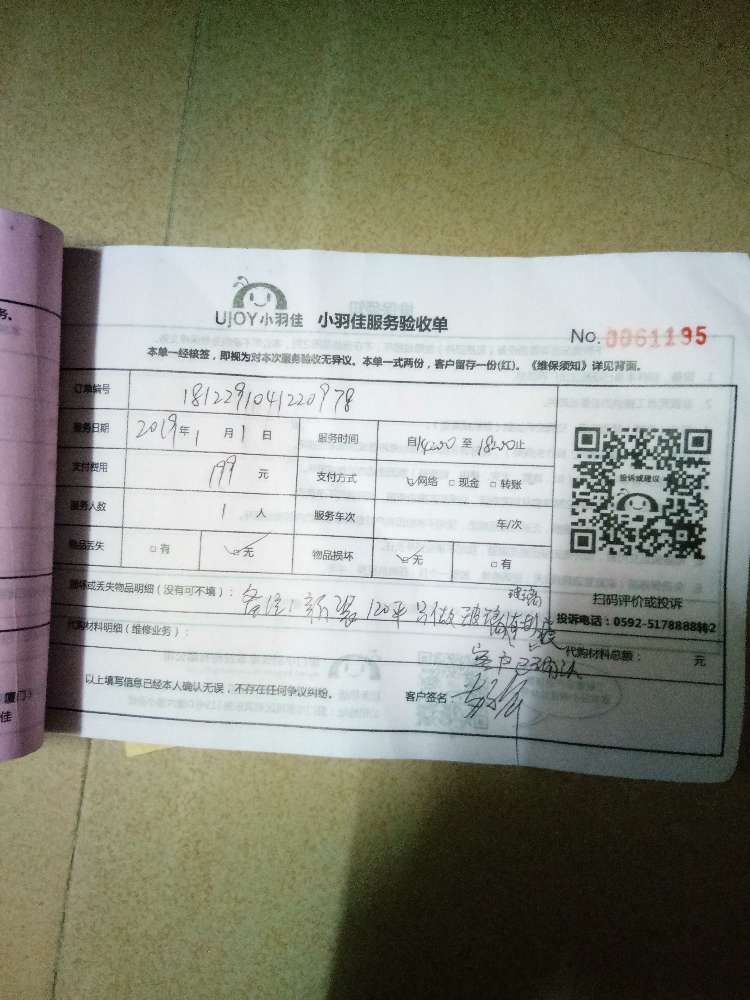 务。
厦门）
佳
UJOY小羽佳 小羽佳服务验收单
No.0061195
本单一经核签，即视为对本次服务验收无异议。本单一式两份，客户留存一份(红)。《维保须知》详见背面。
订单编号 1812291041220978
服务日期 2019年1月1日 服务时间 自14:00至18:00止
支付费用 199元 支付方式 网络 □现金 □转账
服务人数 1人 服务车次 车/次
物品丢失 □有 ✓无 物品损坏 ✓无 □有
投诉或建议
扫码评价或投诉
投诉电话：0592-5178888转2
损坏或丢失物品明细（没有可不填）：备注：新装120平只做玻璃
玻璃
客户已确认
代购材料明细（维修业务）：
代购材料总额： 元
以上填写信息已经本人确认无误，不存在任何争议纠纷。
客户签名：